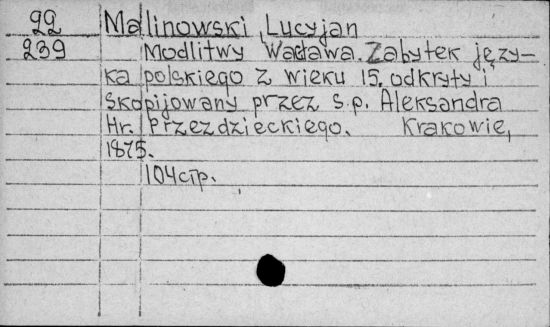 99 Malinowski, Lucyjan
239 Modlitwy Wacława. Zabytek języ-
ka polskiego z wieku 15, odkryty i
skopijowany przez s.p. Aleksandra
Hr. Przezdzieckiego. Krakowie,
1875.
104 стр.